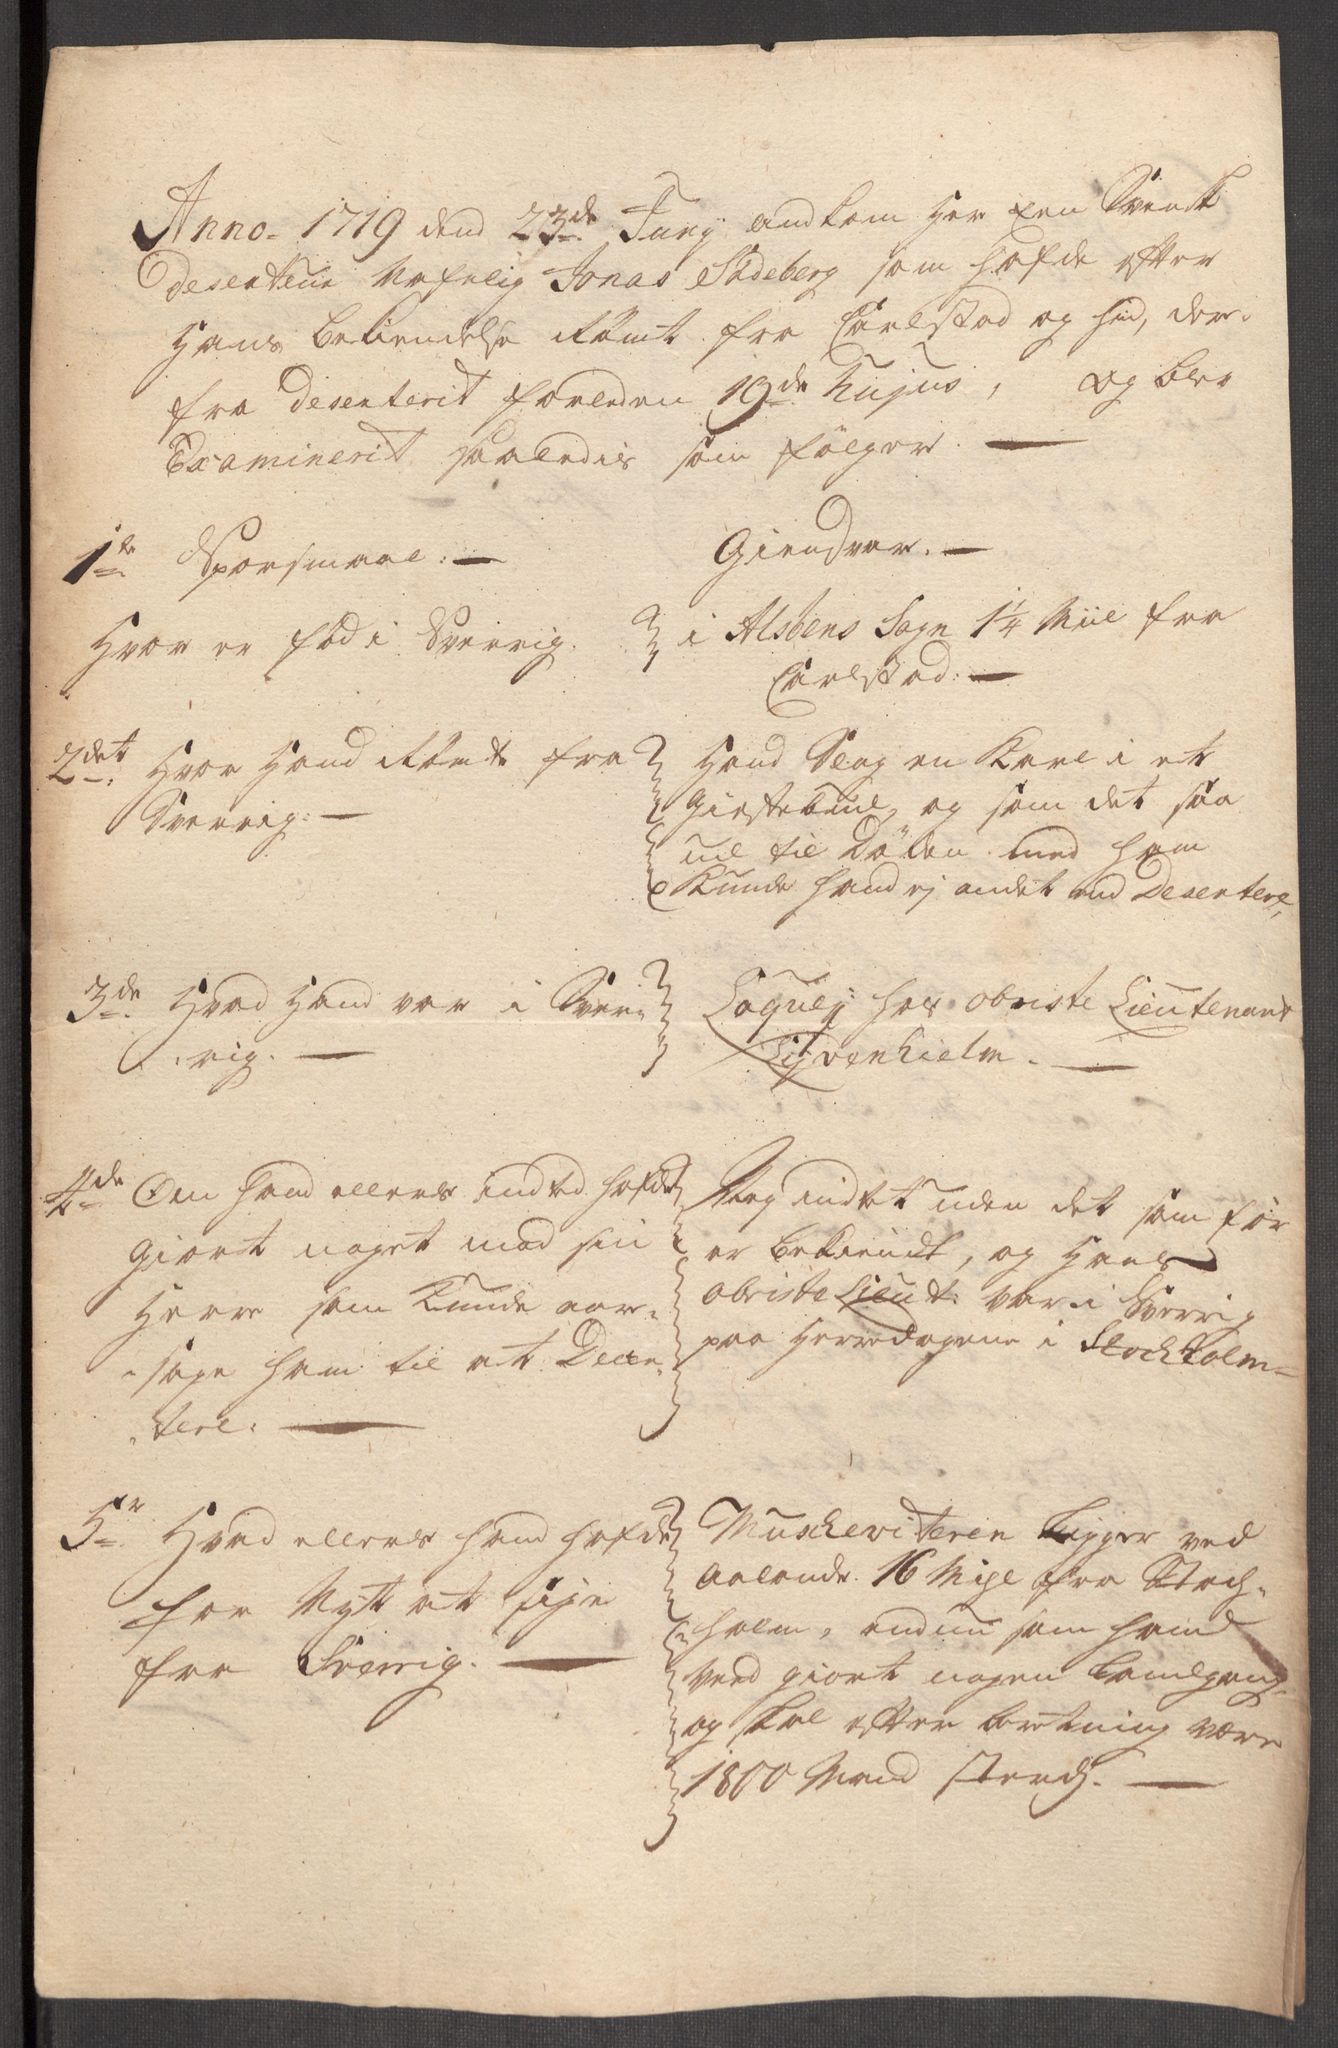 Anno. 1719 dend 23de Juny andkom her een Svensk
Deserteur Nafnlig Jonas Södeberg som hafde efter
Hans bekiendelse Römt fra Carlstad og hid, der-
fra Deserterit forleden 19de hujus, og blev
Examinerit saaledis som fölger. —
1te Sporsmaal: —
Giendsvar. —
Hvor erföd i Sverrig.
i Alsbens Sogn 1 1/4 Miil fra
Carlstad: —
2det Hvor Hand Römte fra
Sverrig: —
Hand Slog en Karl i et
Giestebuud, og som det saa
ud til Döden med ham
Kunde hand ej andet end Desertere,
3de Hvad Hand var i Sver-
rig. —
Laquej hos Obriste Lieutenant
Sijvenhielm. —
4de Om hand ellers indted hafde
Giort noget mod sin
Herre som Kunde aar-
sage ham til at Deser-
tere. —
Nej indtet uden det som för
er bekiendt, og Hans
Obriste Lieut: var i Sverrig
paa Herredagene i Stockholm
5te Hvad ellers hand hafde
for Nytt at sige
fra Sverrig. —
Muschoviteren Ligger ved
Aalands 16 Mijl fra Stoch-
holm, endnu som hand
Veed giort nogen Landgang,
og skal efter beretning være
1800 Mand sterch. —